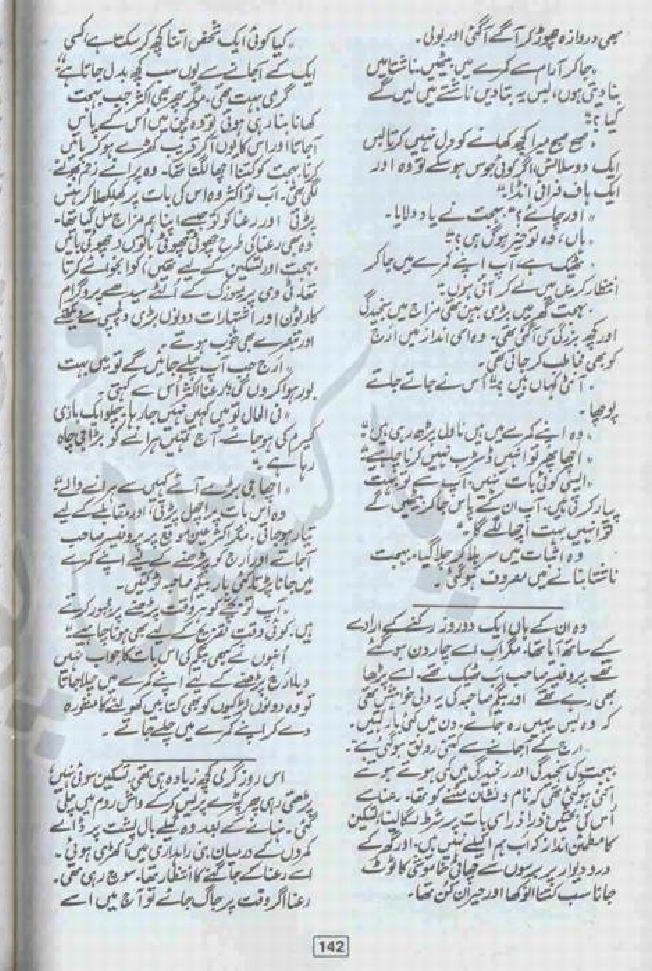 بھی دروازہ چھوڑ کر آگے آ گئی اور بولی۔
"جا کر آرام سے کمرے میں بیٹھیں، ناشتا میں
بنا دیتی ہوں، بس یہ بتا دیں ناشتے میں لیں گے
کیا؟"
"صبح صبح میرا کچھ کھانے کو دل نہیں کرتا بس
ایک دو سلائس، اگر کوئی جوس ہو سکے تو وہ اور
ایک ہاف فرائی انڈا۔"
"اور چائے؟" بہجت نے یاد دلایا۔
"ہاں، وہ تو خیر ہو گی ہی۔"
"ٹھیک ہے، آپ اپنے کمرے میں جا کر
انتظار کریں میں لے کر آتی ہوں۔"
بہجت گھر میں بڑی بہن تھی مزاج میں سنجیدگی
اور کچھ بزرگی سی آ گئی تھی۔ وہ اسی انداز میں ارج
کو بھی مخاطب کر جاتی تھی۔
"آنٹی کہاں ہیں؟" اس نے جاتے جاتے
پوچھا۔
"وہ اپنے کمرے میں ہیں ناول پڑھ رہی ہیں۔"
"اچھا پھر تو انہیں ڈسٹرب نہیں کرنا چاہیے۔"
"ایسی کوئی بات نہیں، آپ سے تو بہت
پیار کرتی ہیں، آپ ان کے پاس جا کر بیٹھیں گے
تو انہیں بہت اچھا لگے گا۔"
وہ اثبات میں سر ہلا کر چلا گیا، بہجت
ناشتا بنانے میں مصروف ہو گئی۔
وہ ان کے ہاں ایک دو روز رکنے کے ارادے
کے ساتھ آیا تھا، مگر اب اسے چار دن ہو گئے
تھے، پروفیسر صاحب اب ٹھیک تھے، اسے پڑھا
بھی رہے تھے اور بیگم صاحبہ کی یہ دلی خواہش تھی
کہ وہ بس یہیں رہ جائے، دن میں کئی بار کہتیں۔
"ارج کے آ جانے سے کتنی رونق ہو گئی ہے۔"
بہجت کی سنجیدگی اور رنجیدگی میں کمی ہوتے ہوتے
اتنی ہو گئی تھی کہ نام و نشان مٹنے کو تھا۔ رعنا سے
اس کی بحثیں ذرا ذرا سی بات پر شرط لگا لینا تسکین
کا مطمئن انداز کہ اب ہم اکیلے نہیں ہیں، اور گھر کے
در و دیوار پر برسوں سے چھائی خاموشی کا ٹوٹ
جانا سب کتنا انوکھا اور حیران کن تھا۔
"کیا کوئی ایک شخص اتنا کچھ کر سکتا ہے، کسی
ایک کے آ جانے سے یوں سب کچھ بدل جاتا ہے"
گرمی بہت تھی، مگر پھر بھی اکثر جب بہجت
کھانا بنا رہی ہوتی تو وہ کچن میں اس کے پاس
آ جاتا اور اس کا یوں آ کر قریب کھڑے ہو کر باتیں
کرنا بہجت کو کتنا اچھا لگتا تھا۔ وہ پرانے زخم بھولنے
لگی تھی۔ اب تو اکثر وہ اس کی بات پر کھلکھلا کر ہنس
پڑتی اور رعنا کو تو جیسے اپنا ہم مزاج مل گیا تھا۔
وہ بھی رعنا کی طرح چھوٹی چھوٹی باتوں کو
بہجت اور تسکین کے لیے تھیں، انجوائے کرتا
تھا، ٹی وی پر چوزی کے الٹے سیدھے پروگرام
کارٹون اور اشتہارات دونوں بڑی دلچسپی سے دیکھتے
اور تبصرے بھی خوب ہوتے۔
"ارج جب آپ چلے جائیں گے تو میں بہت
بور ہوا کروں گی۔" رعنا اکثر اس سے کہتی۔
"فی الحال تو میں کہیں نہیں جا رہا، چلو ایک بازی
کیرم کی ہو جائے، آج تمہیں ہرانے کو بڑا جی چاہ
رہا ہے۔"
"اچھا جی بڑے آئے کہیں سے ہرانے والے"
وہ اس بات پر اچھل پڑتی اور مقابلے کے لیے
تیار ہو جاتی، مگر اکثر عین موقع پر پروفیسر صاحب
آ جاتے اور ارج کو پڑھنے کے لیے اپنے کمرے
میں جانا پڑتا، کئی بار بیگم صاحبہ لڑ پڑتیں۔
"آپ تو بچے کو ہر وقت پڑھنے پر مجبور کرتے
ہیں، کوئی وقت تفریح کے لیے بھی ہونا چاہیے"
انہوں نے کبھی بیگم کی اس بات کا جواب نہیں
دیا، ارج پڑھنے کے لیے اپنے کمرے میں چلا جاتا
تو وہ دونوں لڑکیوں کو بھی کتابیں کھولنے کا مشورہ
دے کر اپنے کمرے میں چلے جاتے۔
اس روز گرمی کچھ زیادہ ہی تھی، تسکین سوئی نہیں،
پڑھتی رہی پھر کپڑے پریس کر کے واش روم میں چلی
گئی۔ نہانے کے بعد وہ گیلے بال پشت پر ڈالے
کمروں کے درمیان بنی راہداری میں کھڑی ہوئی۔
اسے رعنا کے جاگنے کا انتظار تھا۔ سوچ رہی تھی۔
رعنا اگر وقت پر جاگ جائے تو آج میں اسے
142